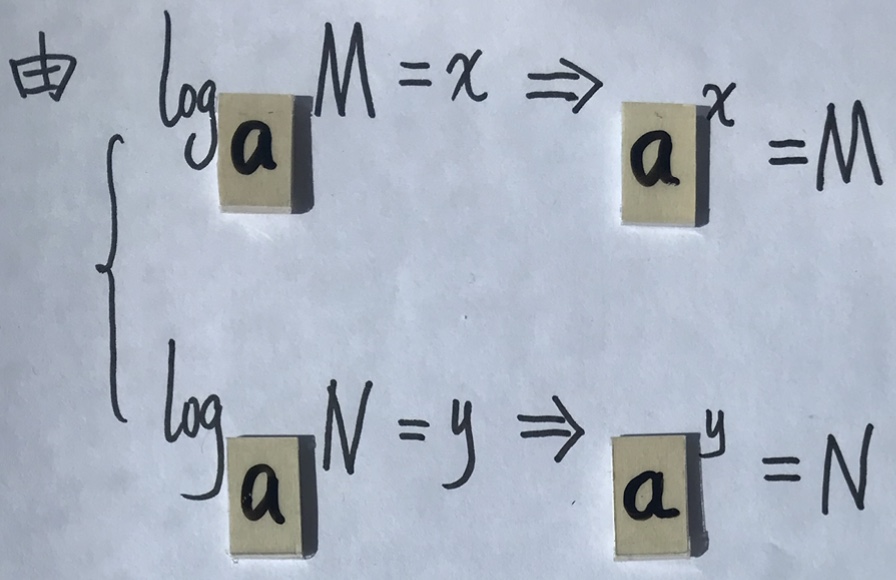 由 { logₐ M = x ⇒ aˣ = M
logₐ N = y ⇒ aʸ = N